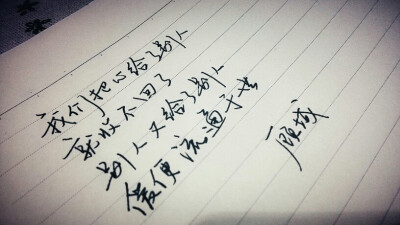 我们把心给了别人
就收不回了
别人又给了别人
爱便流通于世
顾城